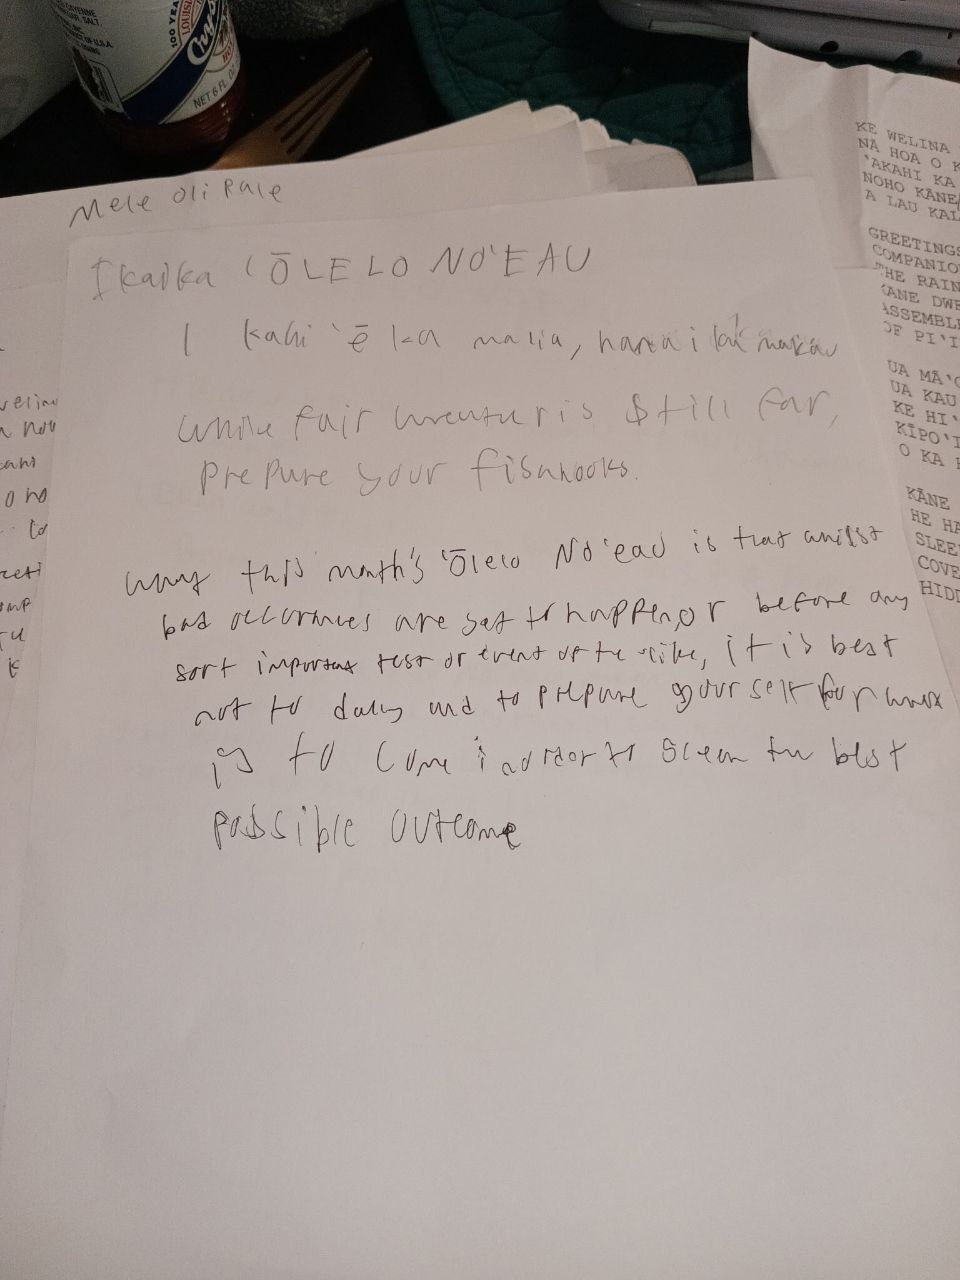 CAYENNE
SALT.
100 YEA
LOUISI
NET 6 FL. OZ
Mele Oli Pule
Ikaika ʻŌLELO NOʻEAU
I kahi ʻē ka malia, hana i ka makau
while fair weather is still far,
prepare your fishhooks.
why this month's ʻŌlelo Noʻeau is that whilst
bad occurances are set to happen, or before any
sort important test or event of the like, it is best
not to daly and to prepare yourself for what
is to come in order to the best
possible outcome
KE WELINA
NĀ HOA O K
ʻAKAHI KA
NOHO KĀNE
A LAU KAL
GREETINGS
COMPANIO
THE RAIN
KĀNE DWE
ASSEMBLE
OF PIʻI
UA MĀʻO
UA KAU
KE HIʻ
KĪPOʻI
O KA
KĀNE
HE HA
SLEE
COVE
HIDD